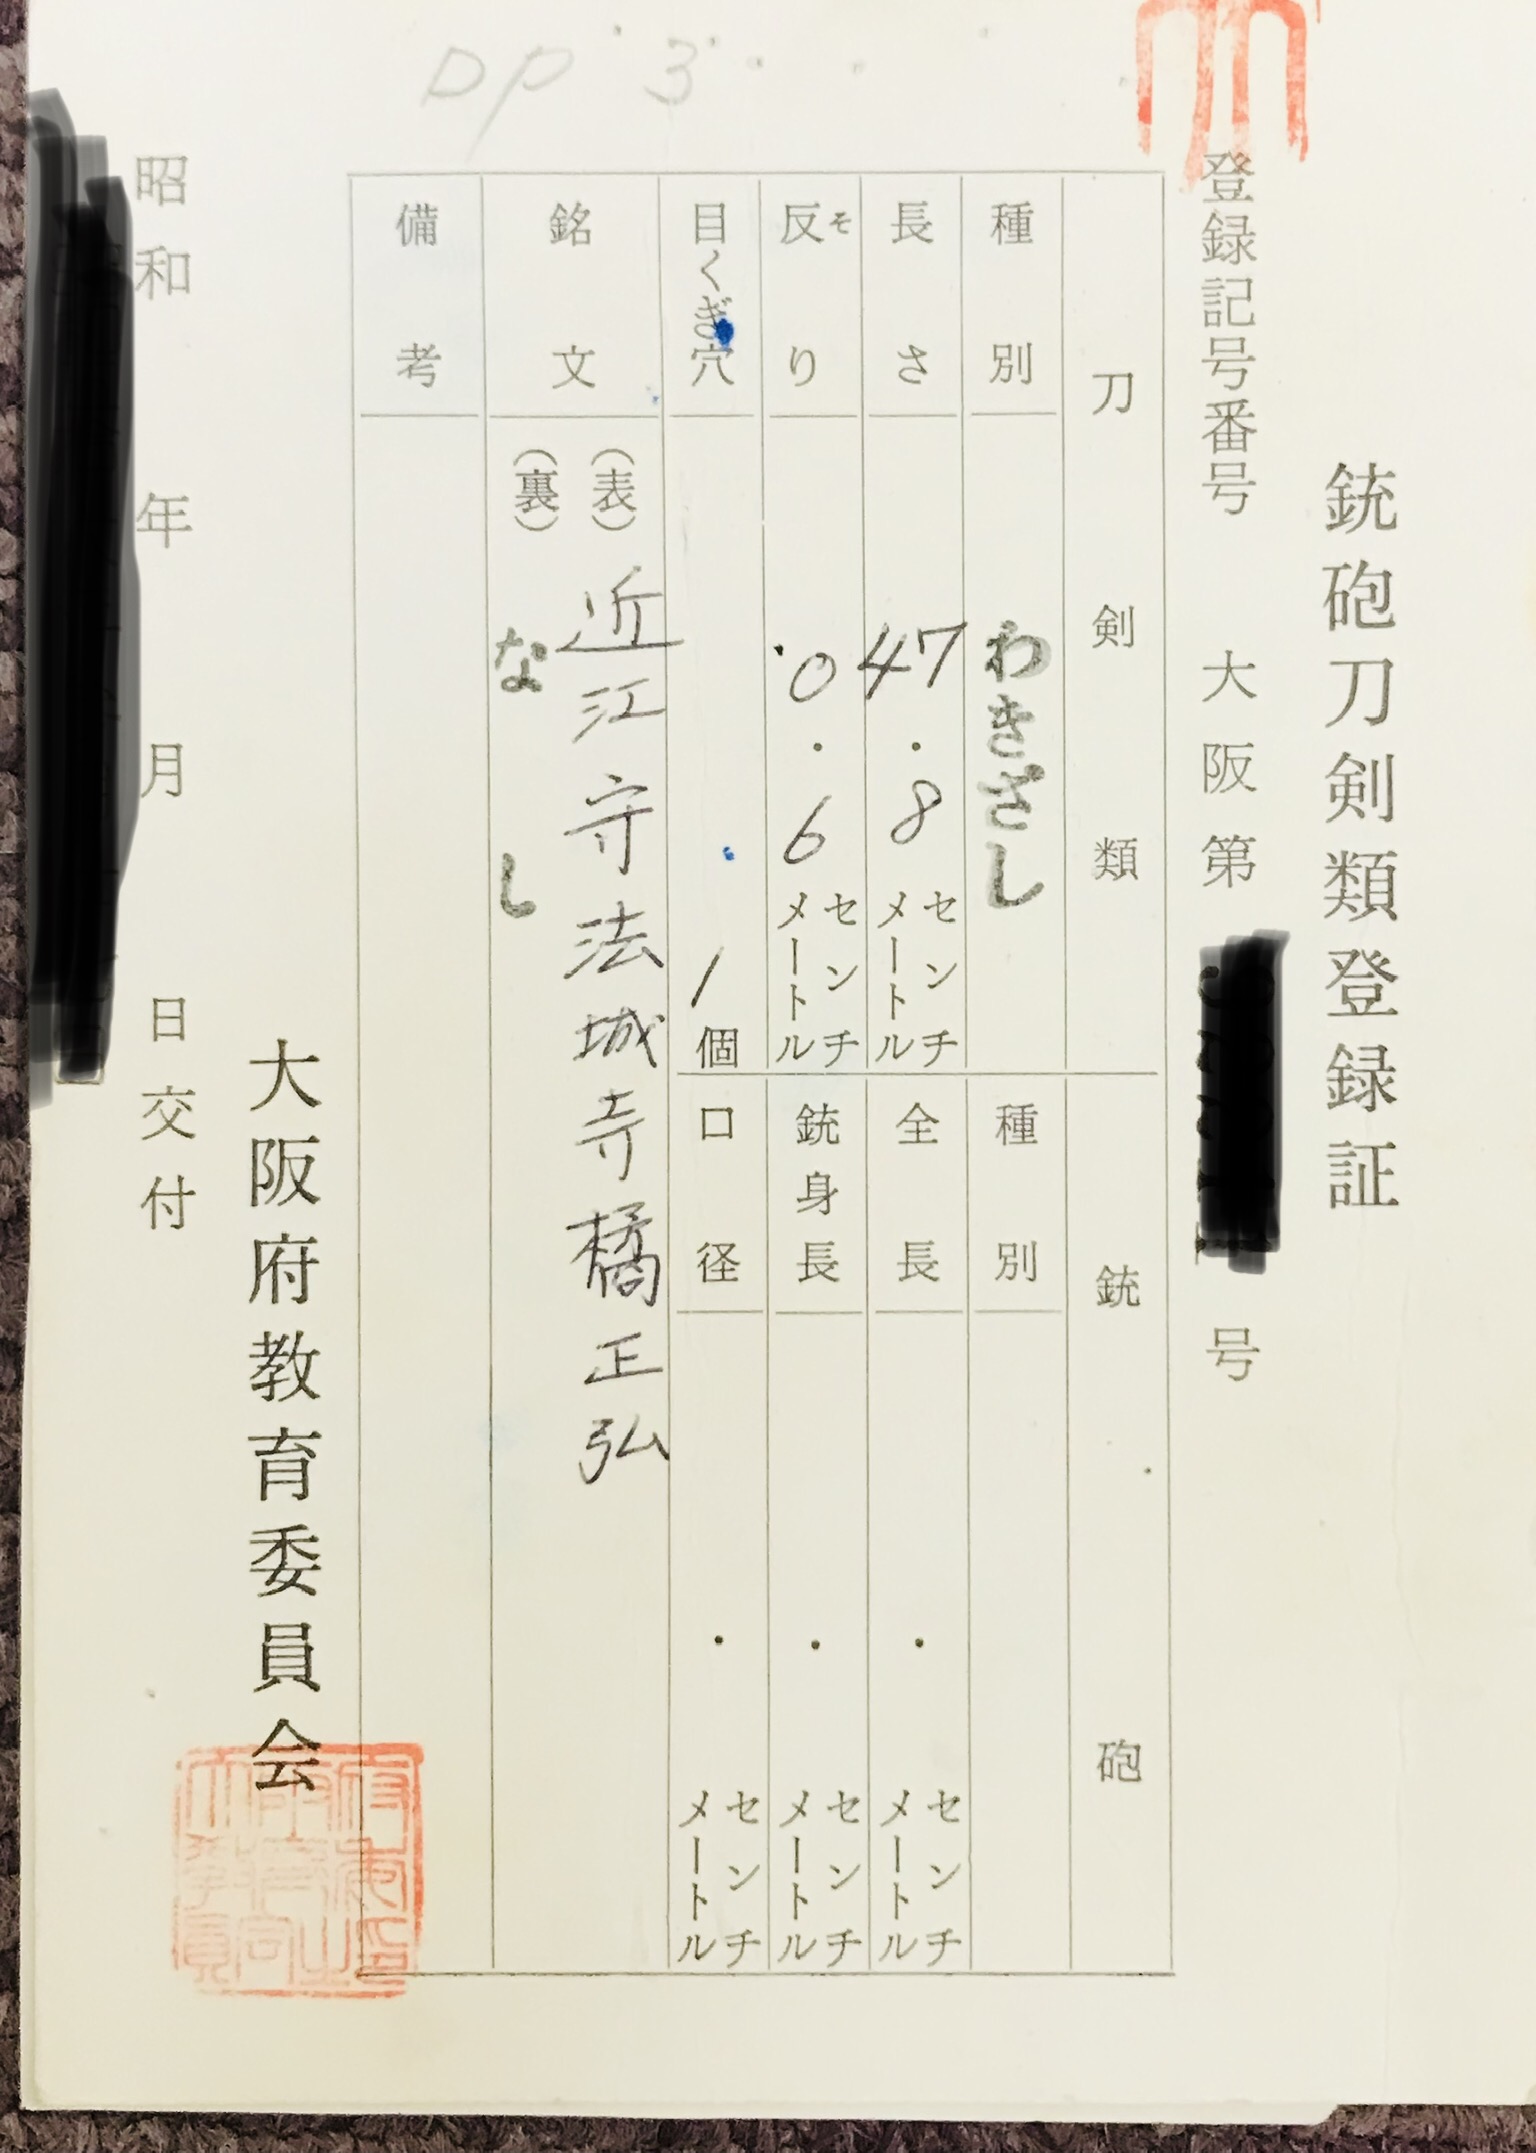 銃砲刀剣類登録証
登録記号番号 大阪第 号
刀剣類
種別 わきざし
長さ 47.8 センチメートル
反り そ 0.6 センチメートル
目くぎ穴 1個
銘文 (表) 近江守法城寺橘正弘
(裏) なし
備考
銃砲
種別
全長 . センチメートル
銃身長 . センチメートル
口径 . センチメートル
大阪府教育委員会
昭和 年 月 日交付
DP 3